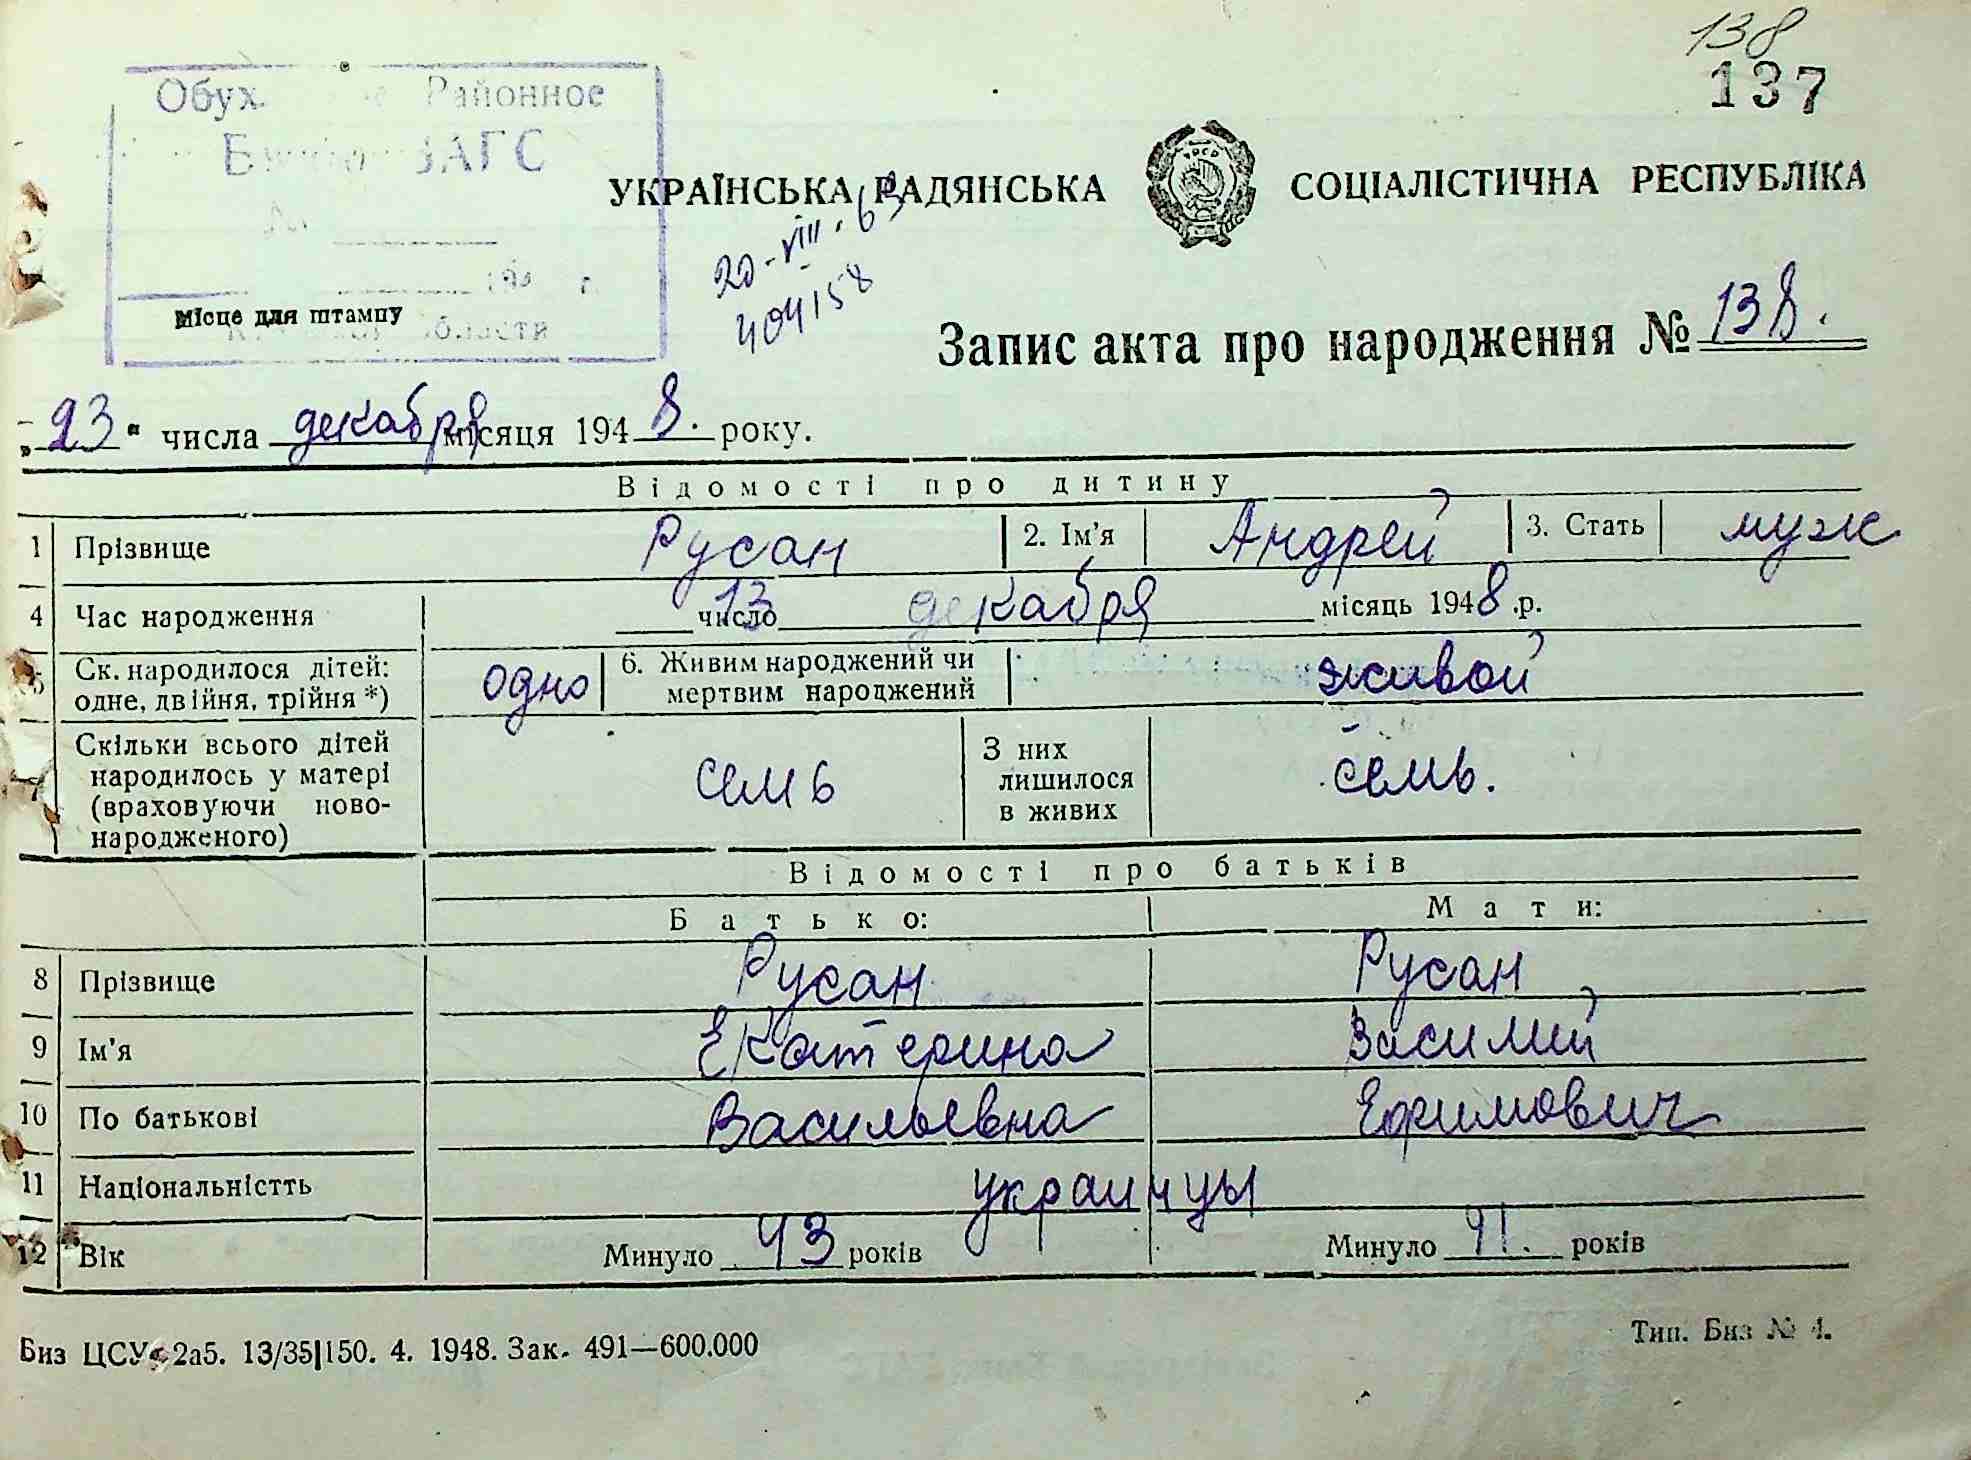 138
137
Обух Районное
ЗАГС
УКРАЇНСЬКА РАДЯНСЬКА СОЦІАЛІСТИЧНА РЕСПУБЛІКА
20-VIII.63
404158
Місце для штампу
области
Запис акта про народження № 138.
„23“ числа декабря місяця 1948. року.
Відомості про дитину
1 Прізвище Русан 2. Ім'я Андрей 3. Стать муж
4 Час народження 13 число декабря місяць 1948.р.
5 Ск. народилося дітей: одне, двійня, трійня *) одно 6. Живим народжений чи мертвим народжений живой
7 Скільки всього дітей народилось у матері (враховуючи ново-народженого) семь З них лишилося в живих семь.
Відомості про батьків
Батько: Мати:
8 Прізвище Русан Русан
9 Ім'я Екатерина Василий
10 По батькові Васильевна Ефимович
11 Національністть украинцы
12 Вік Минуло 43 років Минуло 41. років
Биз ЦСУ 2а5. 13/35|150. 4. 1948. Зак. 491—600.000
Тип. Биз № 4.